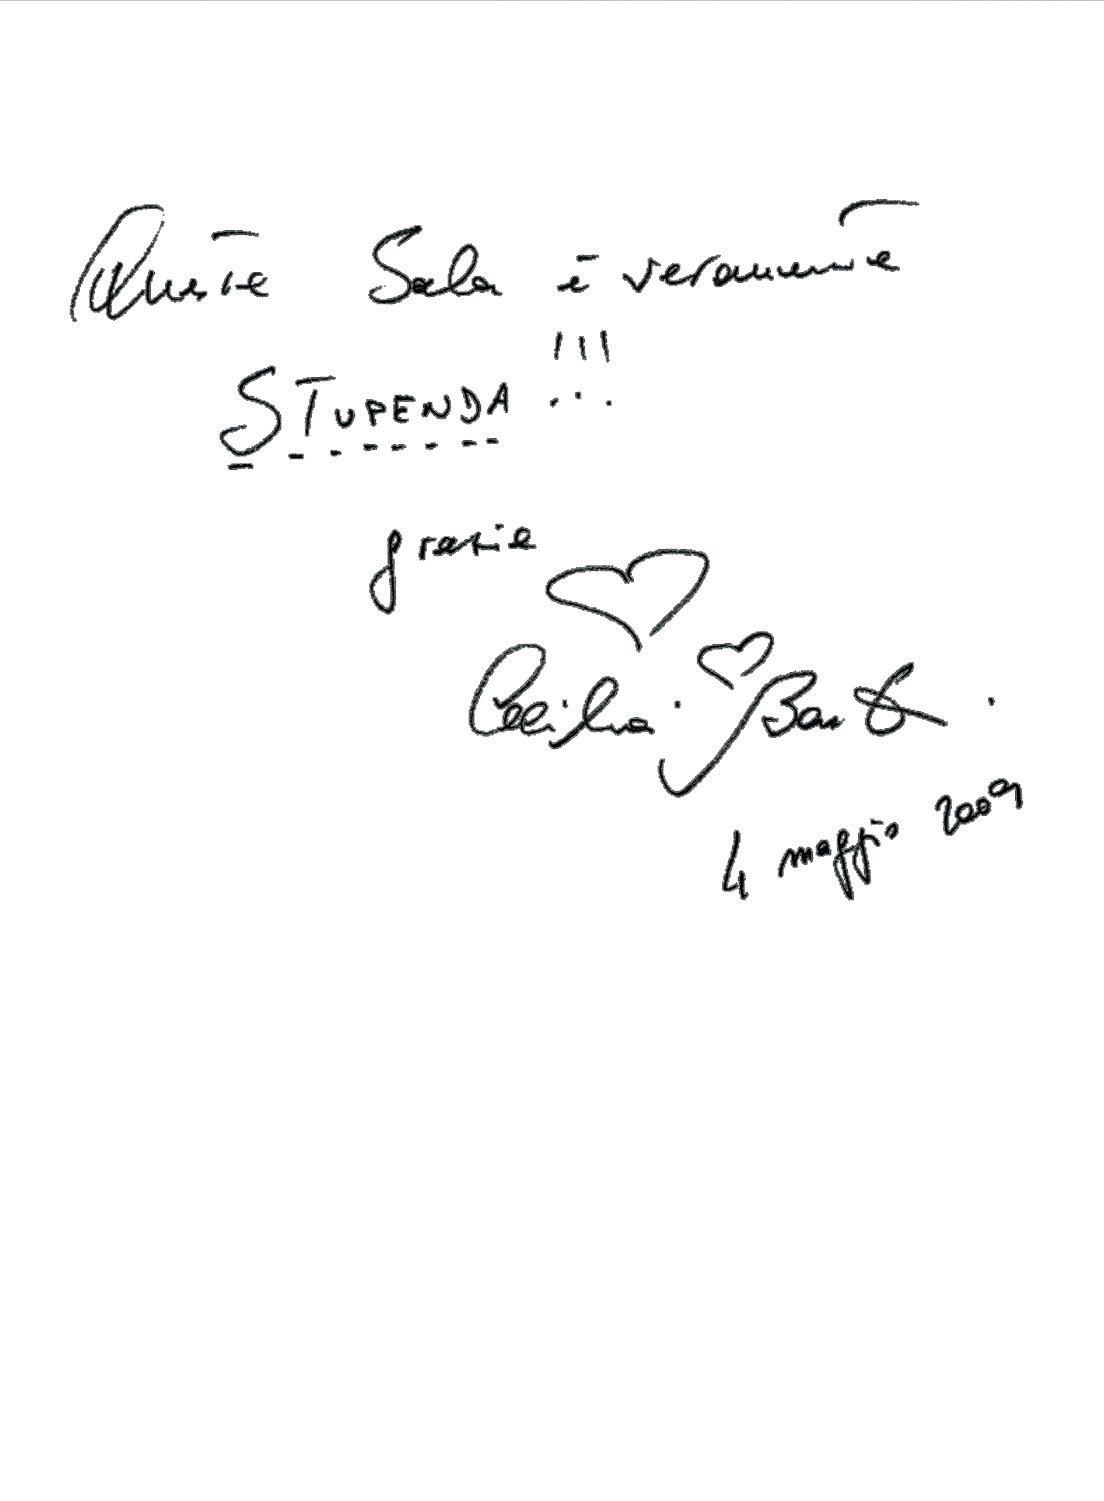 Questa Sala è veramente
STUPENDA !!!
grazie
Cecilia Bartoli
4 maggio 2009